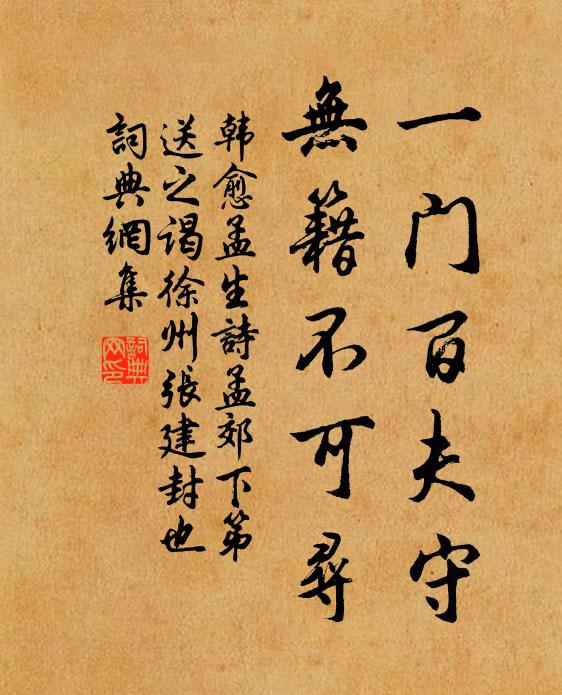 一门百夫守
無籍不可尋
韩愈孟生詩孟郊下第
送之谒徐州張建封也
詞典網集
詞典網印